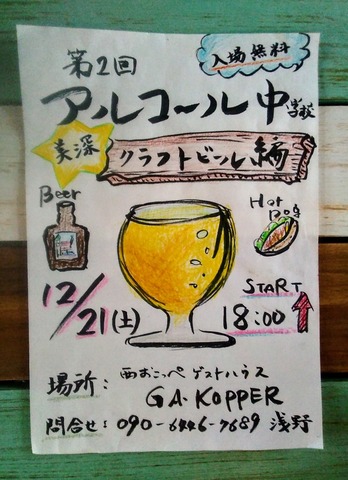 入場無料
第2回
アルコール中学校
美深
クラフトビール編
Beer
Hot
Dog
12/21(土)
START
18:00
場所: 西おこっぺ ゲストハウス
GA.KOPPER
問合せ: 090-6446-7689 浅野